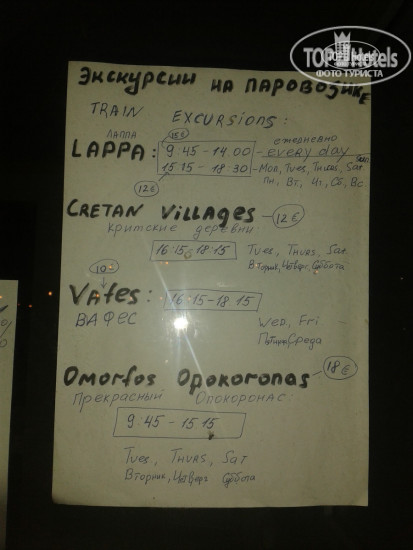 TOPHotels
ФОТО ТУРИСТА
ЭКСКУРСИИ НА ПАРОВОЗИКЕ
TRAIN EXCURSIONS:
ЛАППА 15€ ежедневно
LAPPA: 9:45-14.00 - every day
15:15-18:30 - Mon, Tues, Thurs, Sat,
12€ Пн, Вт, Чт, Сб, Вс
CRETAN VillAGES - 12€
Критские деревни:
16:15-18:15 Tues, Thurs, Sat
Вторник, Четверг, Суббота
10€
Vafes: 16:15-18:15
ВАФЕС Wed, Fri
Пятница, Среда
Omorfos Opokoronas - 18€
Прекрасный Опокоронас:
9:45-15:15
Tues, Thurs, Sat
Вторник, Четверг Суббота